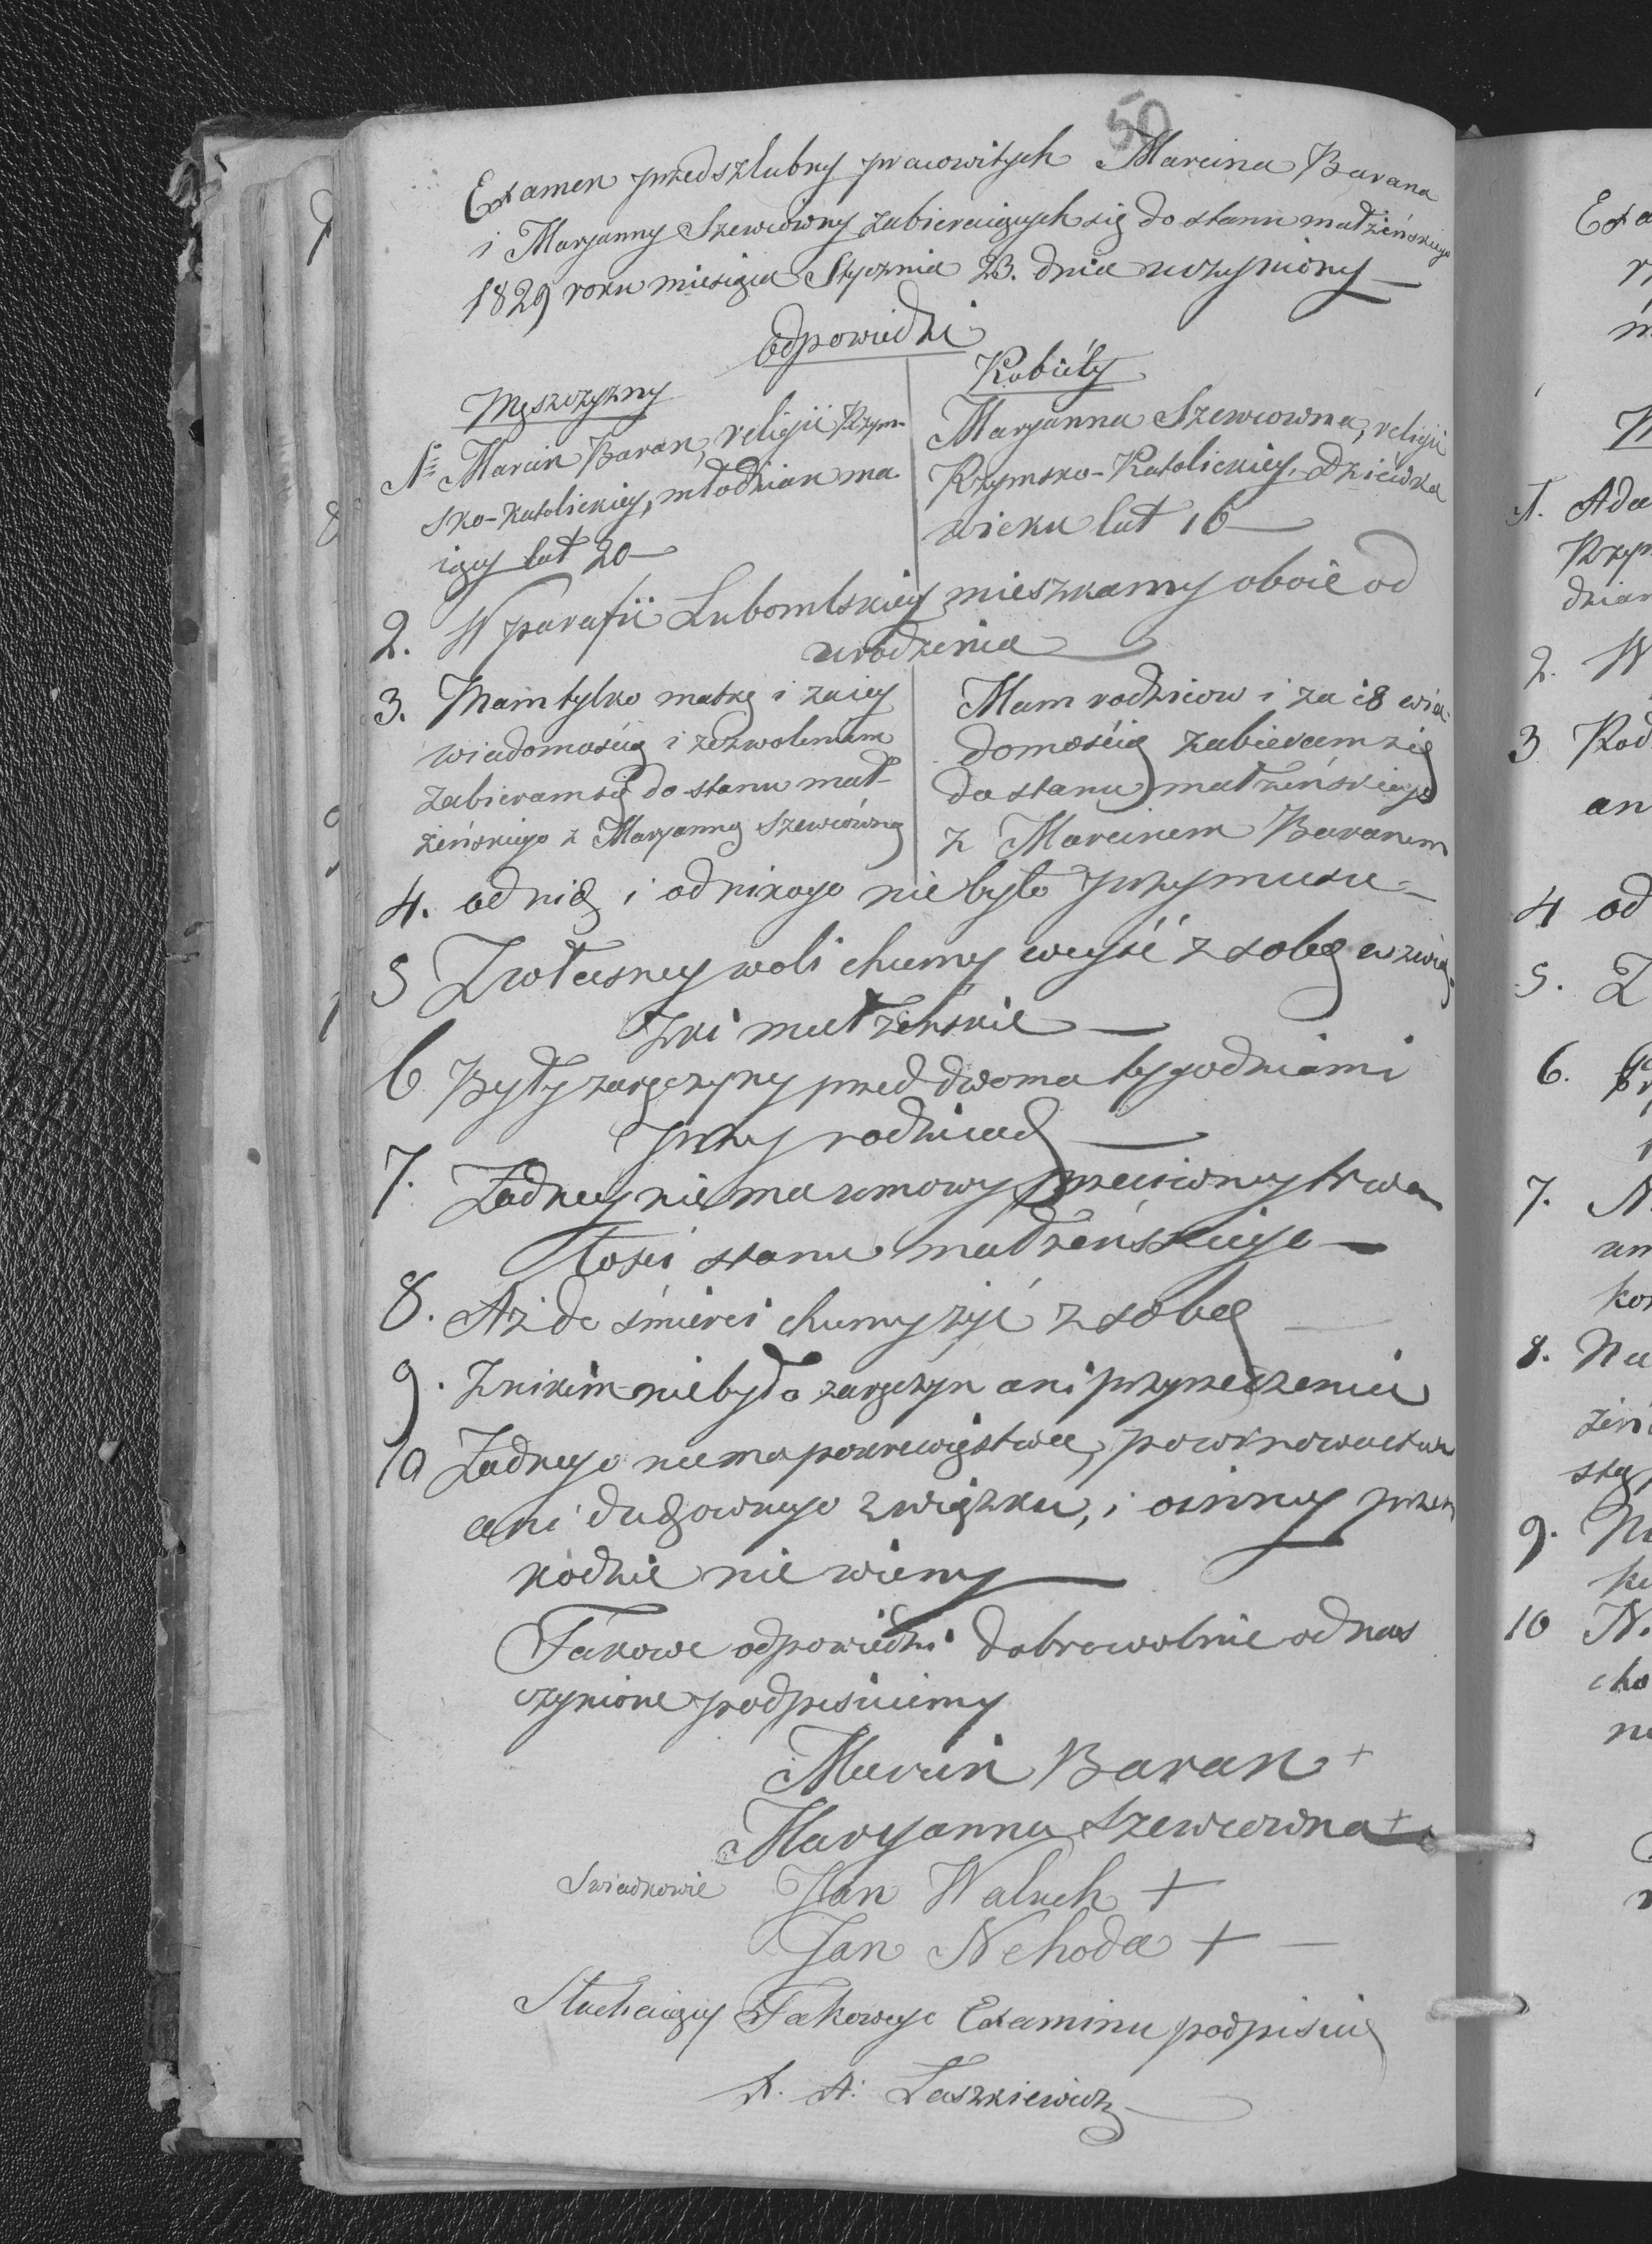 50
Examen przedszlubny pracowitych Marcina Barana
i Maryanny Szewcówny zabieraiących się do stanu małżeńskiego
1829 roku miesiąca Stycznia 23. dnia uczyniony
odpowiedzi
Męszczyzny
1o Marcin Baran, religii Rzym-
sko-katolickiey, młodzian ma
iący lat 20
Kobiéty
Maryanna Szewcowna, religii
Rzymsko-Katolickiey, dziéwka
wieku lat 16
2. W parafii Lubomlskiey mieszkamy oboie od
urodzenia
3. Mam tylko matkę i za iey
wiadomością i zezwoleniem
zabieram się do stanu mał-
żeńskiego z Maryanną Szewcówną
Mam rodziców i za ich wia-
domością zabieram się
do stanu małżeńskiego
z Marcinem Baranem
4. od nich i od nikogo nie było przymusu
5 Z własney woli chcemy weyść z sobą w zwią-
zki małżeńskie
6 Były zaręczyny przed dwoma tygodniami
przy rodzicach
7. Żadney nie ma umowy przeciwney trwa
łości stanu małżeńskiego
8. Aż do śmierci chcemy żyć z sobą
9. Z nikim nie było zaręczyn ani przyrzeczenia
10 Żadnego niema pokrewięstwa, powinowactwa
ani duchownego związku, i o inney przesz
kodzie nie wiemy
Takowe odpowiedzi dobrowolnie od nas
czynione podpisuiemy
Marcin Baran +
Maryanna Szewcowna +
Swiadkowie Jan Waluch +
Jan Nehoda +
Słuchaiący Takowego Examinu podpisuię
X. A. Laszkiewicz
Exa
1. Ada
Rzym
dzian
2. W
3 Rod
an
4 od
5. Z
6.
7. N
um
8. Na
żeń
9.
10 N.
cho